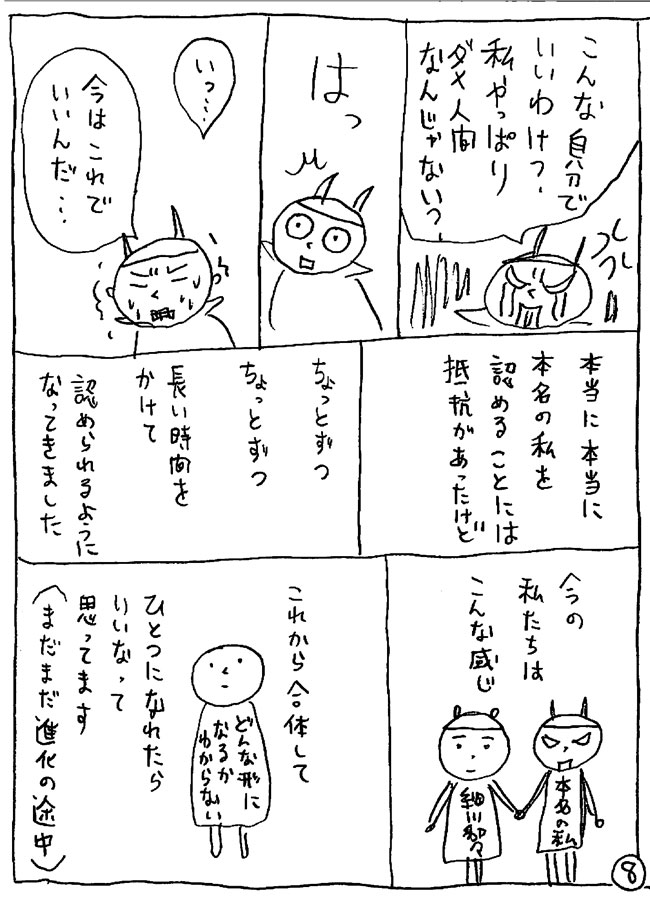 こんな自分で
いいわけっ
私やっぱり
ダメ人間
なんじゃないっ
フレ
フレ
はっ
いっ…
今はこれで
いいんだ…
本当に本当に
本名の私を
認めることには
抵抗があったけど
ちょっとずつ
ちょっとずつ
長い時間を
かけて
認められるように
なってきました
今の
私たちは
こんな感じ
本名の私
細川貂々
これから合体して
どんな形に
なるか
わからない
ひとつになれたら
いいなって
思ってます
(まだまだ進化の途中)
8